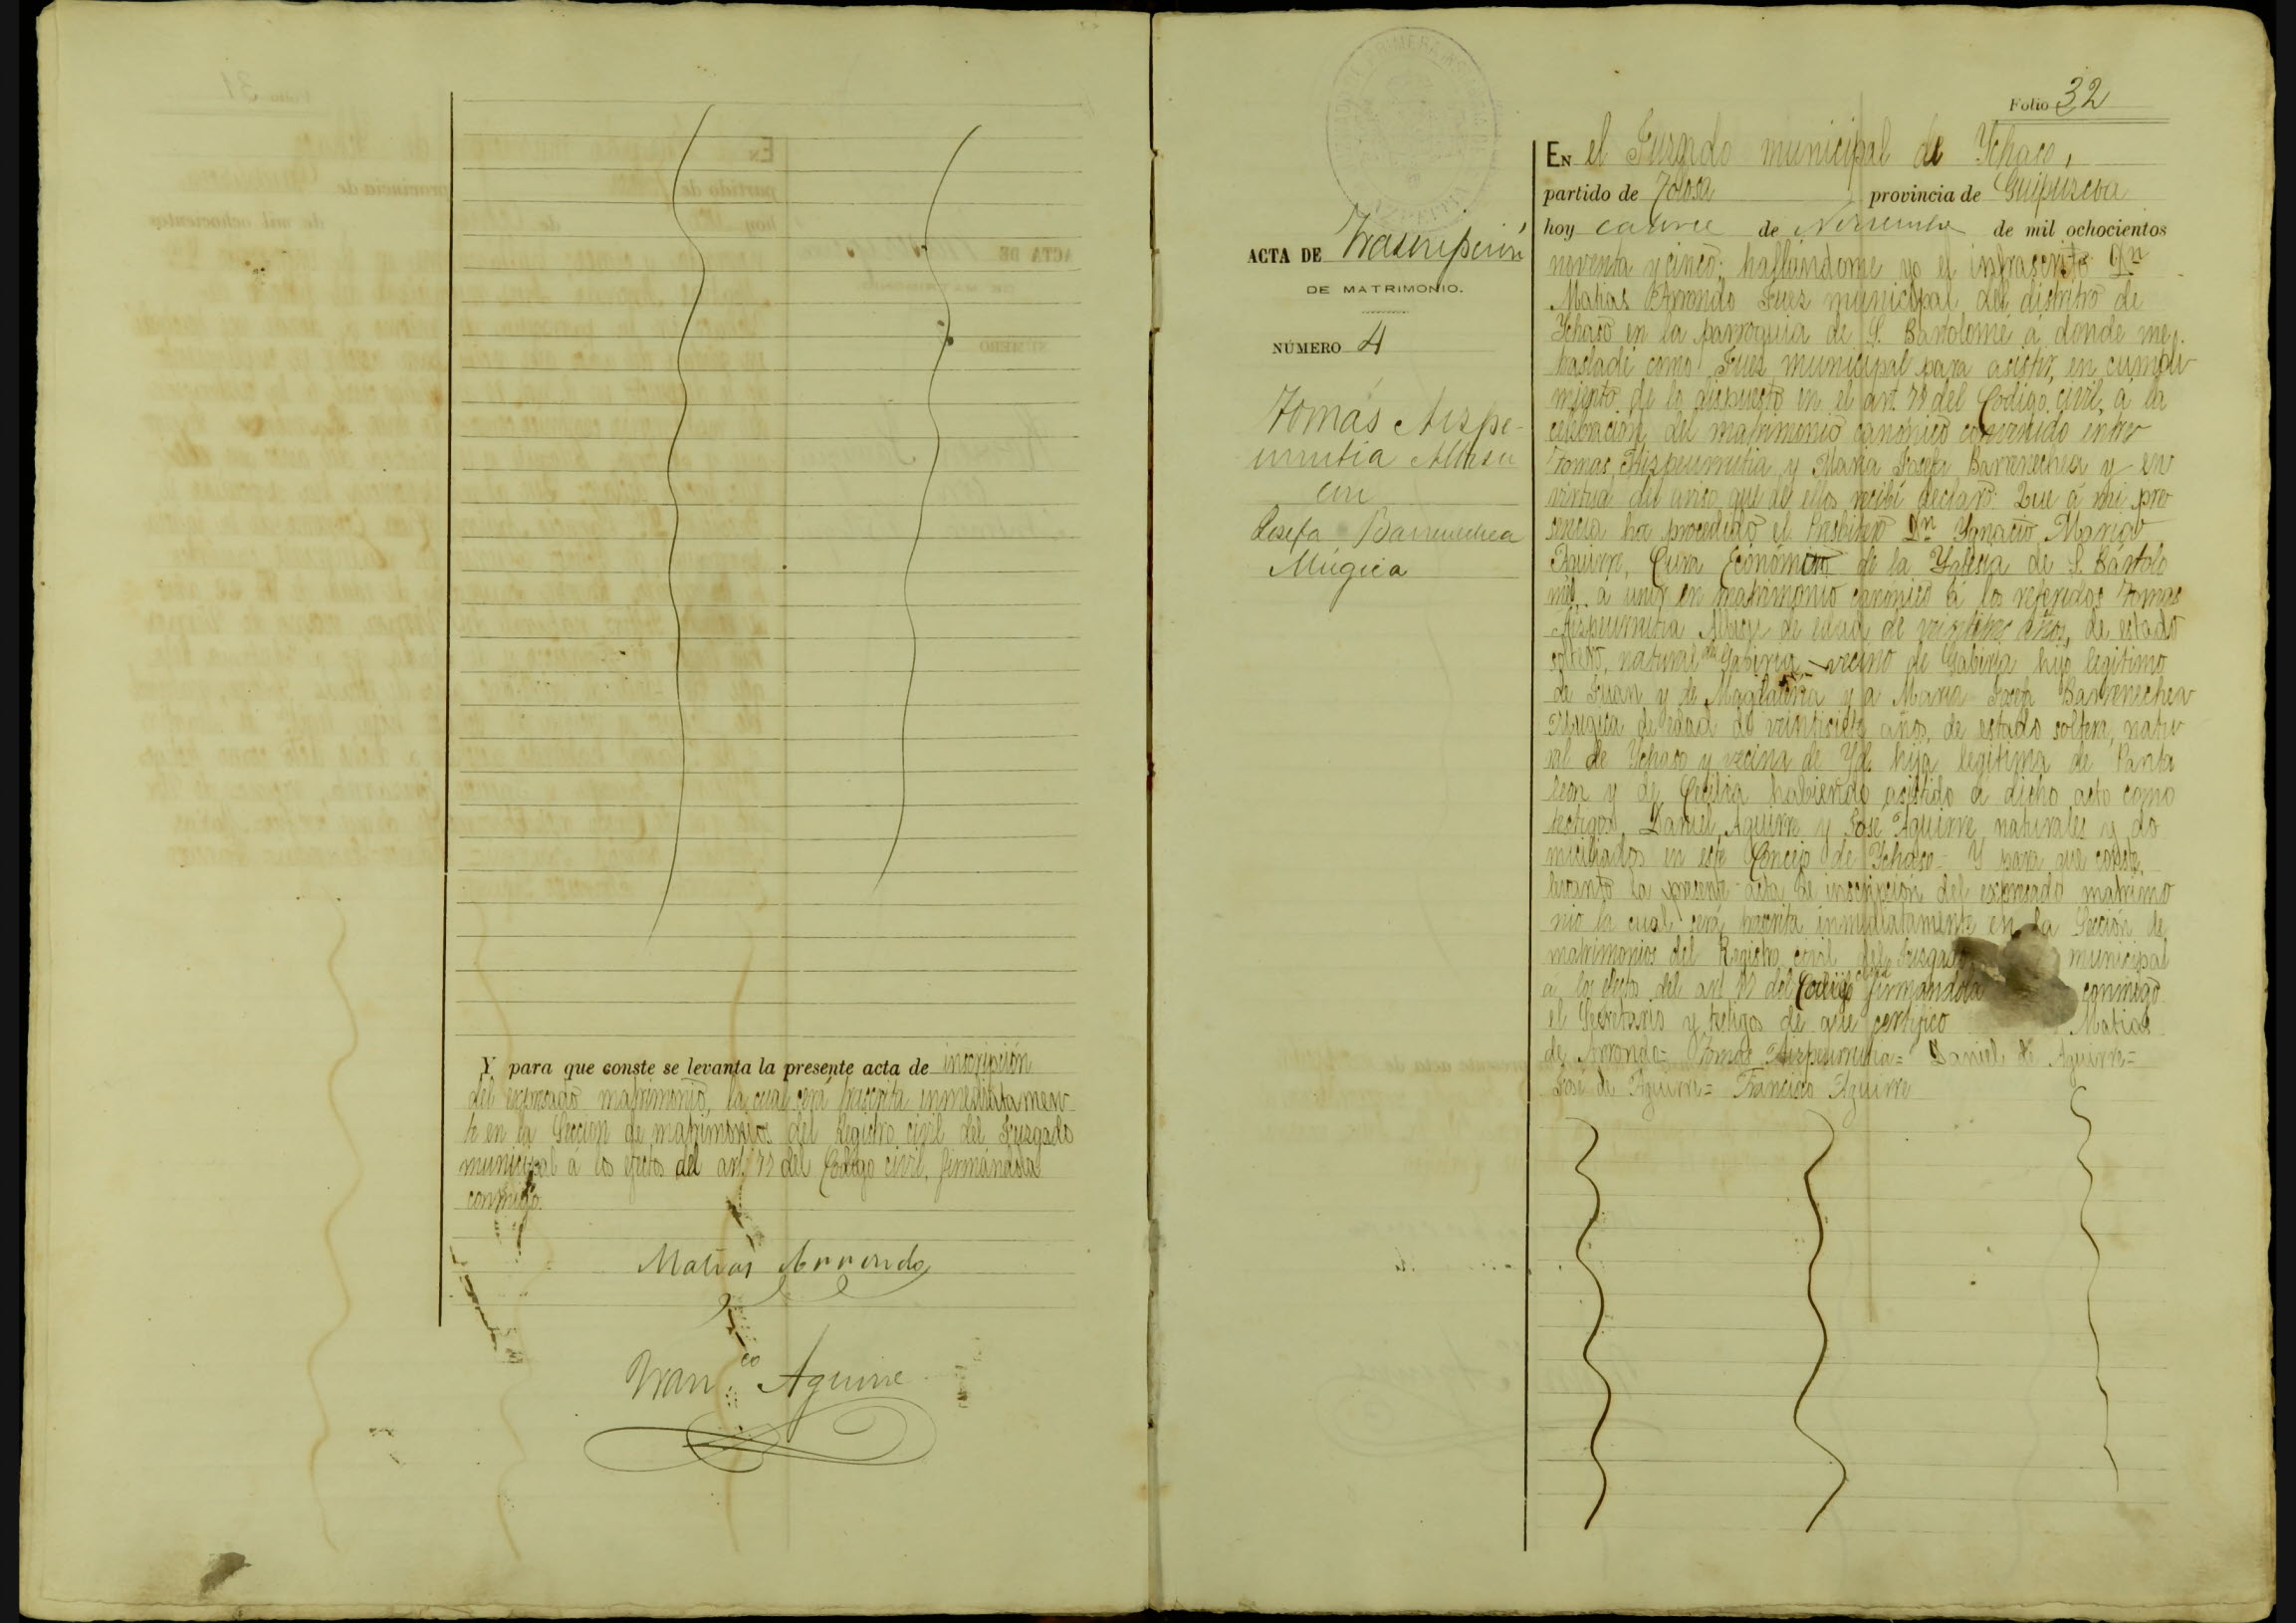 Y para que conste se levanta la presente acta de inscripción
del expresado matrimonio, la cual será trascrita inmediatamen
te en la Sección de matrimonios del Registro civil del Juzgado
municipal á los efectos del art. 77 del Codigo civil, firmándola
conmigo.
Matias Arrondo
Franco Aguirre
Folio 32
ACTA DE Trascripción
DE MATRIMONIO.
NÚMERO 4
Tomás Aizpe-
urrutia Albisu
con
Josefa Barrenechea
Múgica
EN el Juzgado municipal de Ychaso,
partido de Tolosa provincia de Guipúzcoa
hoy catorce de Noviembre de mil ochocientos
noventa y cinco; hallándome yo el infrascrito Dn
Matias Arrondo Juez municipal del distrito de
Ychaso en la parroquia de S. Bartolomé á donde me
trasladé como Juez municipal para asistir, en cumpli
miento de lo dispuesto en el art. 77 del Codigo civil, á la
celebración del matrimonio canónico convenido entre
Tomas Aizpeurrutia y Maria Josefa Barrenechea y en
virtud del aviso que de ellos recibí declaro: Que á mi pre
sencia ha procedido el Presbitero Dn Ygnacio Maria
Aguirre, Cura Ecónomo de la Yglesia de S. Bártolo
mé, á unir en matrimonio canónico á los referidos Tomas
Aizpeurrutia Albisu de edad de años, de estado
soltero, natural de Gabiria vecino de Gabiria hijo legitimo
de Juan y de Magdalena y a Maria Josefa Barrenechea
Mugica de edad de veintisiete años, de estado soltera, natu
ral de Ychaso y vecina de Yd. hija legitima de Panta
leon y de Cecilia habiendo asistido á dicho acto como
testigos, Daniel Aguirre y José Aguirre naturales y do
miciliados en este Concejo de Ychaso - Y para que conste,
levanto la presente acta de inscripción del expresado matrimo
nio la cual será trascrita inmediatamente en la Sección de
matrimonios del Registro civil del Juzgado municipal
á los efectos del art 77 del Codigo civil firmándola conmigo
el Secretario y testigos de que certifico Matias
de Arrondo = Tomas Aizpeurrutia = Daniel de Aguirre =
José de Aguirre = Francisco Aguirre